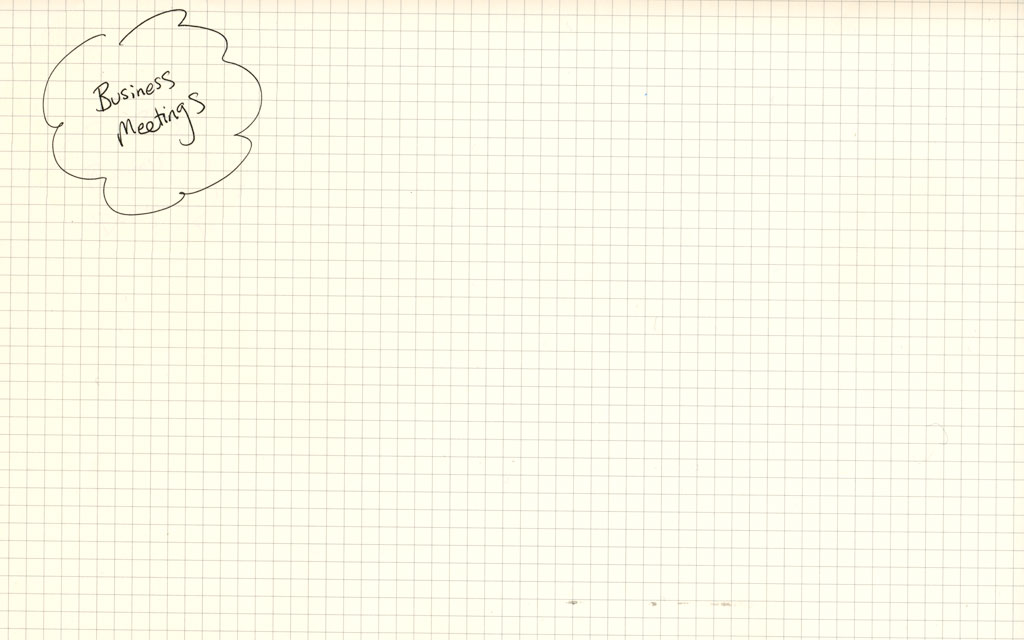 Business
Meetings